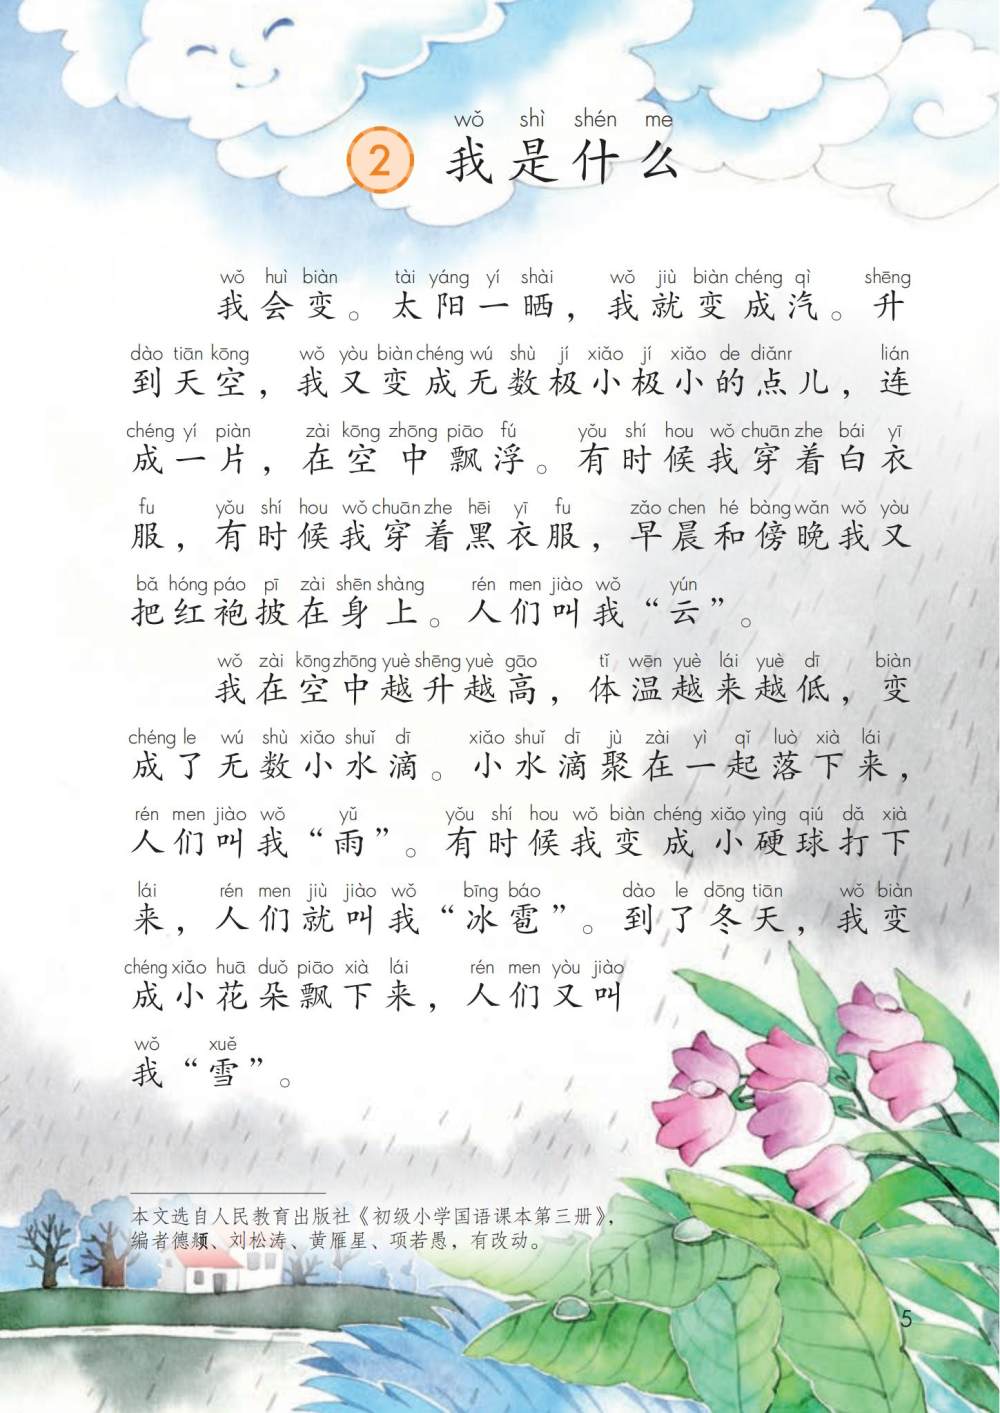 wǒ shì shén me
2 我是什么
wǒ huì biàn tài yáng yí shài wǒ jiù biàn chéng qì shēng
我会变。太阳一晒，我就变成汽。升
dào tiān kōng wǒ yòu biàn chéng wú shù jí xiǎo jí xiǎo de diǎnr lián
到天空，我又变成无数极小极小的点儿，连
chéng yí piàn zài kōng zhōng piāo fú yǒu shí hou wǒ chuān zhe bái yī
成一片，在空中飘浮。有时候我穿着白衣
fu yǒu shí hou wǒ chuān zhe hēi yī fu zǎo chen hé bàng wǎn wǒ yòu
服，有时候我穿着黑衣服，早晨和傍晚我又
bǎ hóng páo pī zài shēn shàng rén men jiào wǒ yún
把红袍披在身上。人们叫我“云”。
wǒ zài kōng zhōng yuè shēng yuè gāo tǐ wēn yuè lái yuè dī biàn
我在空中越升越高，体温越来越低，变
chéng le wú shù xiǎo shuǐ dī xiǎo shuǐ dī jù zài yì qǐ luò xià lái
成了无数小水滴。小水滴聚在一起落下来，
rén men jiào wǒ yǔ yǒu shí hou wǒ biàn chéng xiǎo yìng qiú dǎ xià
人们叫我“雨”。有时候我变成小硬球打下
lái rén men jiù jiào wǒ bīng báo dào le dōng tiān wǒ biàn
来，人们就叫我“冰雹”。到了冬天，我变
chéng xiǎo huā duǒ piāo xià lái rén men yòu jiào
成小花朵飘下来，人们又叫
wǒ xuě
我“雪”。
本文选自人民教育出版社《初级小学国语课本第三册》，
编者德颂、刘松涛、黄雁星、项若愚，有改动。
5